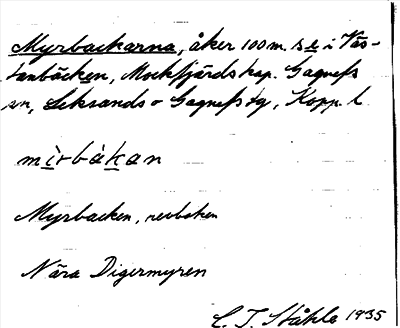 Myrbackarna, åker 100 m. s e i Väs-
tanbäcken, Mockfjärds kap. Gagnefs
sn, Leksands o Gagnefs tg, Kopp. l.
mìrbàkan
Myrbacken,
Nära Digermyren
C. I. Ståhle 1935